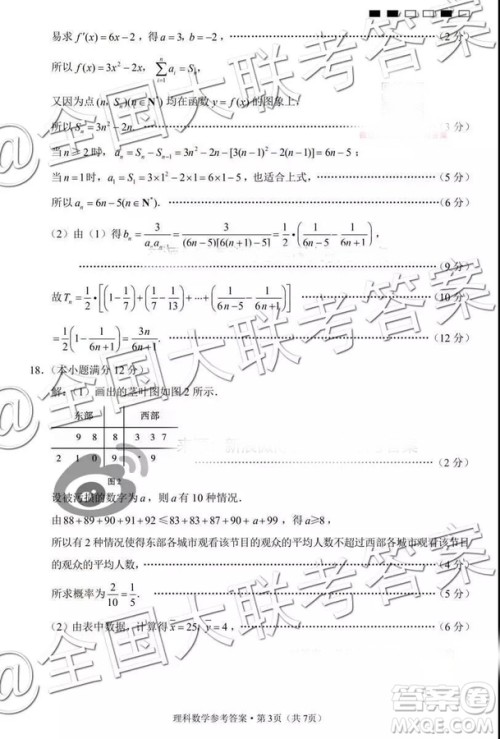 易求 f′(x)=6x−2，得 a=3，b=−2，……（2 分）
所以 f(x)=3x²−2x，∑ᵢ₌₁ⁿ aᵢ=Sₙ，
又因为点(n, Sₙ)(n∈N*) 均在函数 y=f(x) 的图象上，
所以 Sₙ=3n²−2n. ……（3 分）
当 n≥2 时，aₙ=Sₙ−Sₙ₋₁=3n²−2n−[3(n−1)²−2(n−1)]=6n−5；
当 n=1 时，a₁=S₁=3×1²−2×1=6×1−5，也适合上式，……（5 分）
所以 aₙ=6n−5(n∈N*). ……（6 分）
（2）由（1）得 bₙ=3/(aₙaₙ₊₁)=3/((6n−5)[6(n+1)−5])=1/2•(1/(6n−5)−1/(6n+1))，
……（9 分）
故 Tₙ=1/2•[(1−1/7)+(1/7−1/13)+⋯+(1/(6n−5)−1/(6n+1))] ……（10 分）
=1/2(1−1/(6n+1))=3n/(6n+1). ……（12 分）
18.（本小题满分 12 分）
解：（1）画出的茎叶图如图 2 所示.
东部 西部
9 8 8 3 3 7
2 1 0 9 9 ……（2 分）
图 2
设被污损的数字为 a，则 a 有 10 种情况.
由 88+89+90+91+92≤83+83+87+90+a+99，得 a≥8，
所以有 2 种情况使得东部各城市观看该节目的观众的平均人数不超过西部各城市观看该节目
的观众的平均人数，……（4 分）
所求概率为 2/10=1/5. ……（5 分）
（2）由表中数据，计算得 x̄=25，ȳ=4，……（6 分）
理科数学参考答案 • 第 3 页（共 7 页）
@全国大联考答案
@全国大联考答案
答案圈
MXQE.COM